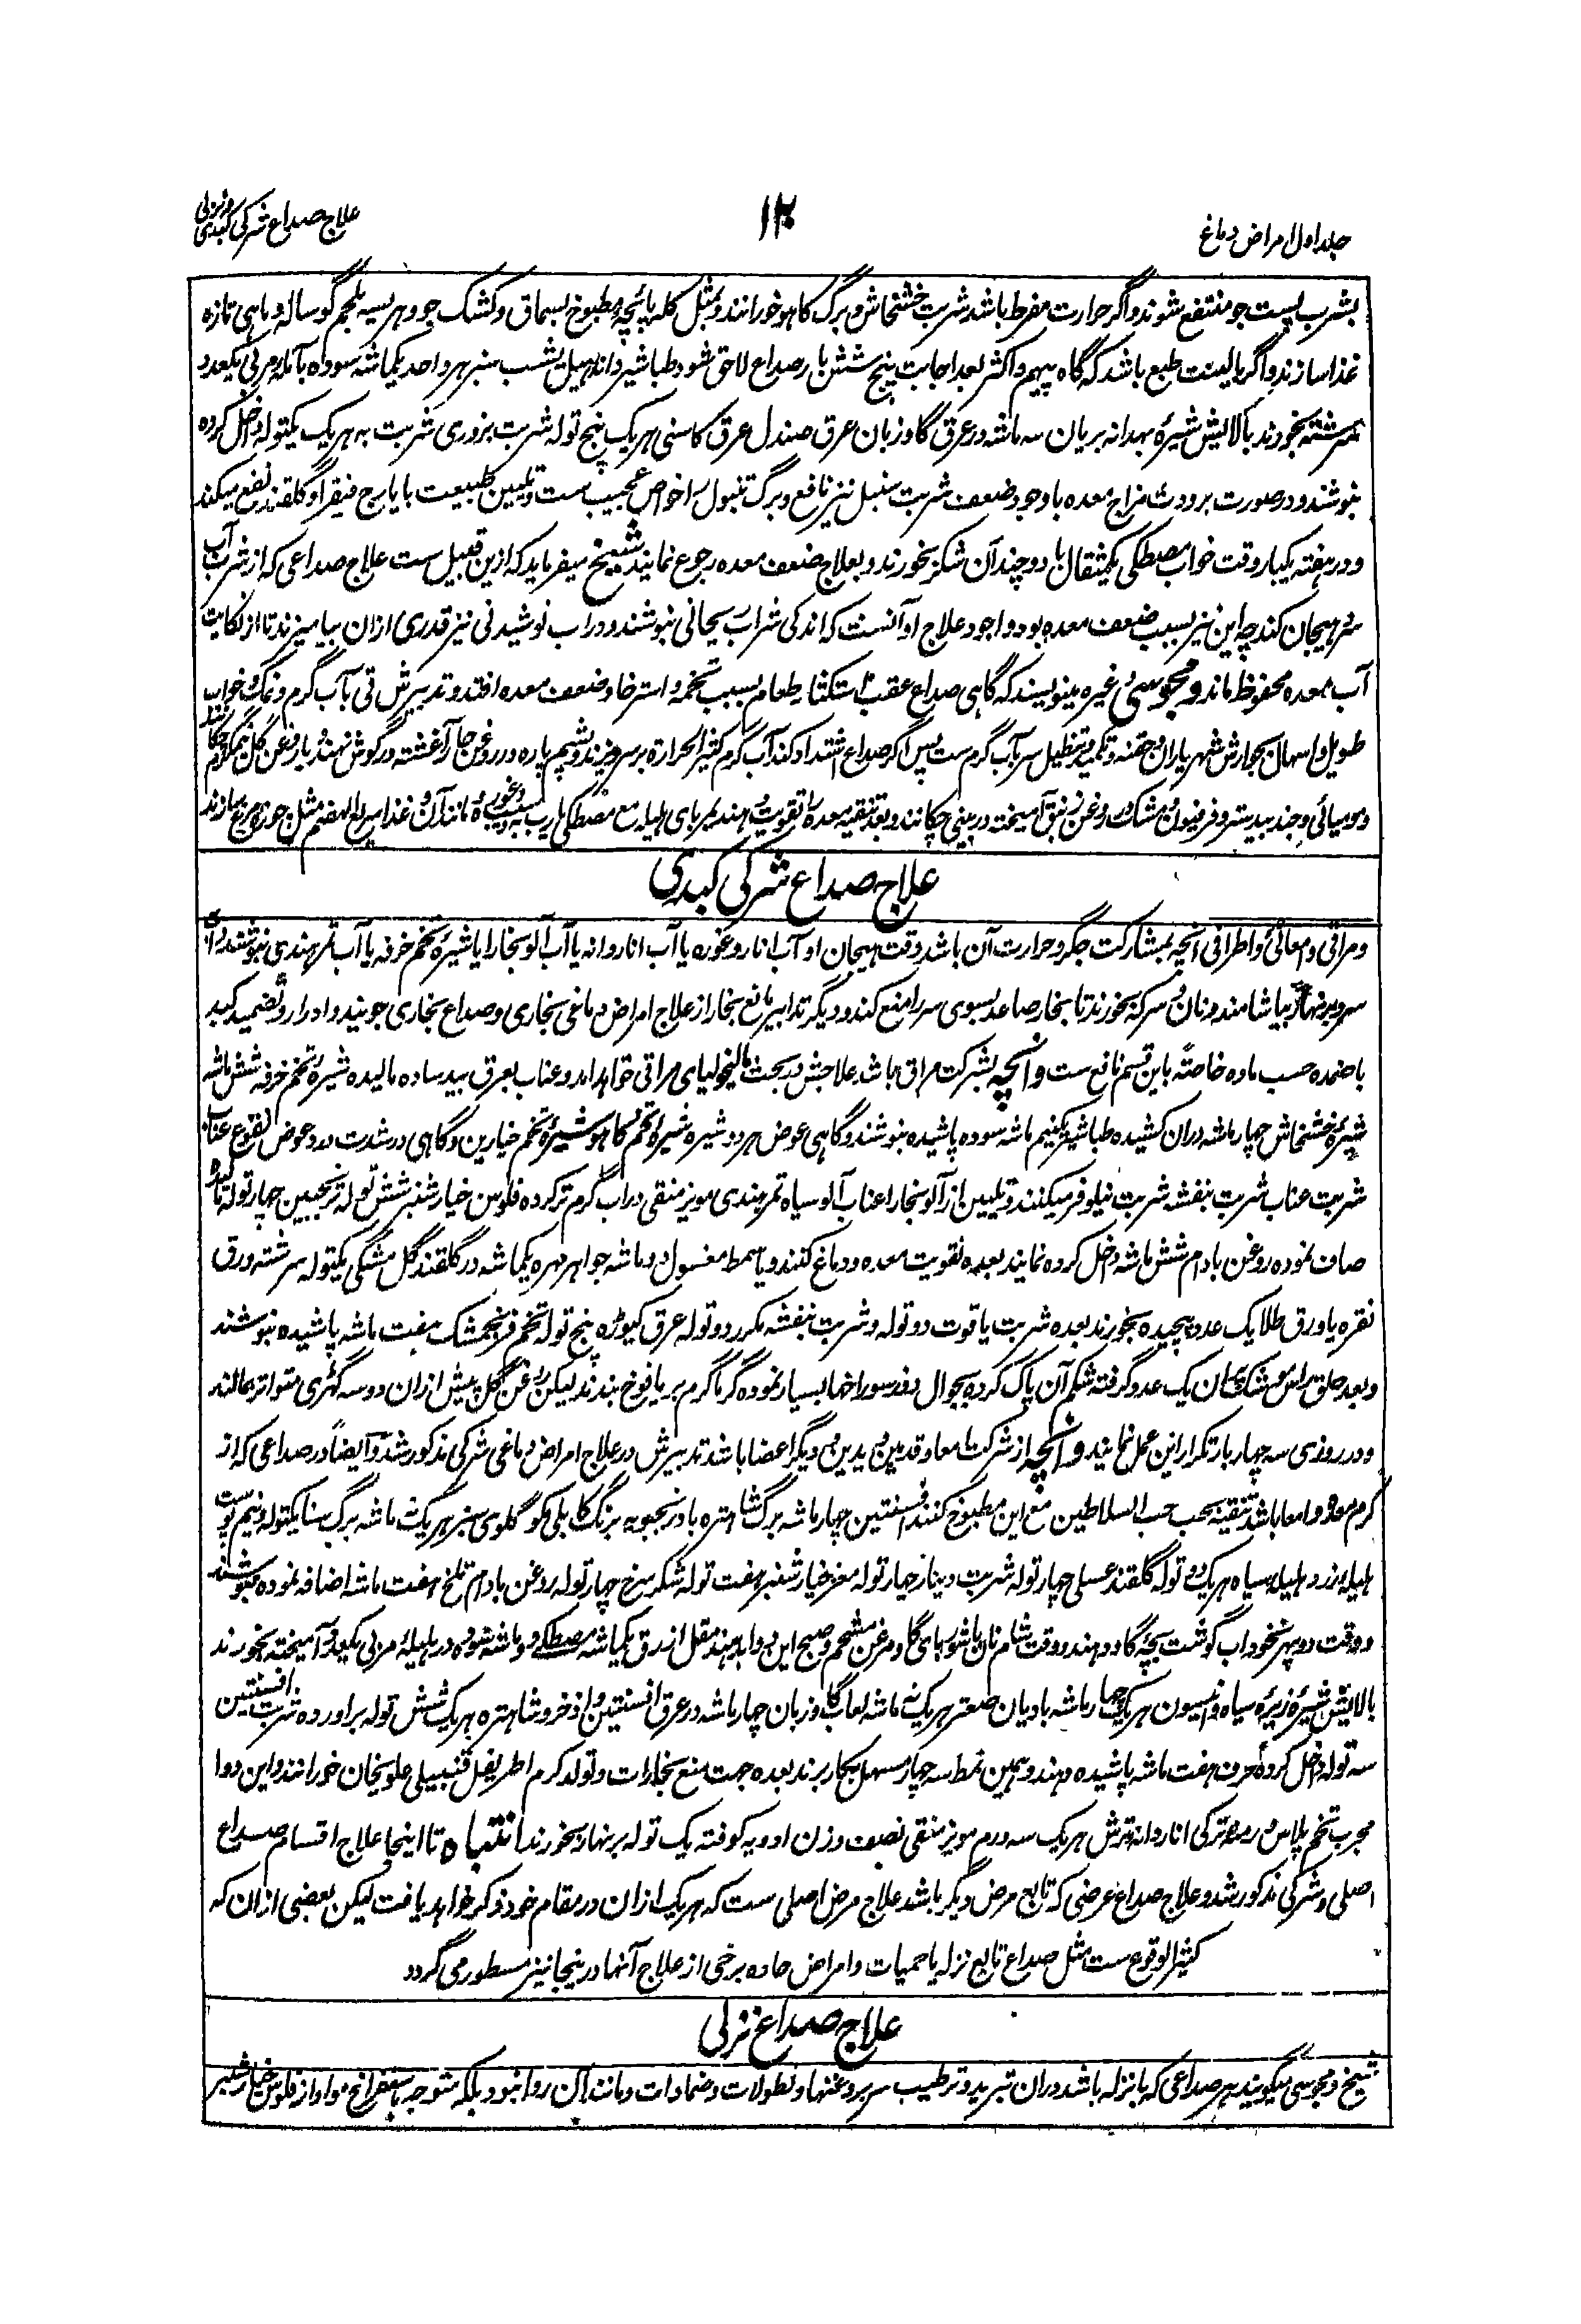 جلد اول امراض دماغ
۱۲۰
علاج صداع شرکی کبدی و نزلی
بشرب پست جو منتفع شوند و اگر حرارت مفرط باشد شربت خشخاش و برگ کاهو خورانند و بمثل کله پائچه مطبوخ بسماق و کشک جو و هریسه بلحم گوساله و ماهی تازه
غذا سازند و اگر با لینت طبع باشد که گاه پیهم و اکثر بعد اجابت پنج شش بار صداع لاحق شود طباشیر دانه هیل یشب سبز هر واحد یکماشه سوده بآمله مربی یکعدد
سرشته بخورند بالایش شیره بهدانه بریان سه ماشه در عرق گاوزبان عرق صندل عرق کاسنی هر یک پنج توله شربت بزوری شربت به هر یک یکتوله داخل کرده
بنوشند و در صورت برودت مزاج معده باوجود ضعف شربت سنبل نیز نافع و برگ تنبول را خواص عجیب ست و تلیین طبیعت با یارج فیقرا و گلقند نفع میکند
و در هفته یکبار وقت خواب مصطکی یکمثقال با دو چند آن شکر بخورند و بعلاج ضعف معده رجوع نمایند شیخ میفرماید که ازین قبیل ست علاج صداعی که از شرب آب
سرد هیجان کند چه این نیز بسبب ضعف معده بود و اجود علاج او آنست که اندکی شراب ریحانی بنوشند و در آب نوشیدنی نیز قدری ازان بیامیزند تا از نکایت
آب معده محفوظ ماند و مجوسی و غیره مینویسند که گاهی صداع عقب استکثار طعام بسبب تخمه و استرخا و ضعف معده افتد و تدبیرش قی بآب گرم و نمک و خواب
طویل و اسهال بجوارش شهریاران و حقنه و تکمید و تنطیل سر بآب گرم ست پس اگر صداع اشتداد کند آب گرم کثیر الحرارة بر سر ریزند و پشم پاره در روغن حار آغشته در گوش نهند و یا روغن گل نیمگرم چکانند
و مومیائی و جندبیدستر و فرفیون و مشک در روغن زنبق آمیخته در بینی چکانند و بعد تنقیه معده را تقویت دهند بمربای هلیله مع مصطکی یا رب سیب و به و غوره و مانند آن و غذا سریع الهضم مثل جوزه مرغ سازند
علاج صداع شرکی کبدی
و مراقی و امعائی و اطرافی آنچه بمشارکت جگر و حرارت آن باشد وقت هیجان او آب انار و غوره یا آب اناردانه یا آب آلوبخارا یا شیره تخم خرفه یا آب تمرهندی بنوشند و آب
سرد بر نهار بیاشامند و نان و سرکه بخورند تا بخار صاعد بسوی سر را منع کند و دیگر تدابیر مانع بخار از علاج امراض دماغی بخاری و صداع بخاری جویند و ادرار و تضمید کبد
باضمده حسب ماده خاصةً باین قسم نافع ست و آنچه بشرکت مراق باشد علاجش در بحث مالیخولیای مراقی خواهد آمد و عناب بعرق بید ساده مالیده شیره تخم خرفه شش ماشه
شیره خشخاش چهار ماشه دران کشیده طباشیر یکنیم ماشه سوده پاشیده بنوشند و گاهی عوض هر دو شیره شیره تخم کاهو شیره تخم خیارین و گاهی در شدت درد عوض نقوع عناب
شربت عناب شربت بنفشه شربت نیلوفر میکنند و تلیین از آلوبخارا عناب آلو سیاه تمرهندی مویز منقی در آب گرم تر کرده فلوس خیارشنبر شش توله ترنجبین چهار توله مالیده
صاف نموده روغن بادام شش ماشه داخل کرده نمایند بعده تقویت معده و دماغ کنند و یا بسط مغسول دو ماشه جواهر مهره یکماشه در گلقند گل مشکی یکتوله سرشته ورق
نقره یا ورق طلا یک عدد پیچیده بخورند بعده شربت یاقوت دو توله و شربت بنفشه مکرر دو توله عرق کیوڑه پنج توله تخم فرنجمشک هفت ماشه پاشیده بنوشند
و بعد حلق راس یک عدد گرفته شکم آن پاک کرده بجوال دوز سوراخها بسیار نموده گرماگرم بر یافوخ بندند لیکن روغن گل پیش ازان دو سه گهڑی متواتر بمالند
و در روزی سه چهار بار تکرار این عمل نمایند و آنچه از شرکت امعا و قدمین و یدین و دیگر اعضا باشد تدبیرش در علاج امراض دماغی شرکی مذکور شد و ایضاً در صداعی که از
کرم معده و امعا باشد تنقیه بحب السلاطین مع این مطبوخ کنند افسنتین چهار ماشه برگ شاهتره بادرنجبویه برنگ کابلی مکو گلوی سبز هر یک ماشه برگ سنا یکتوله و نیم پوست
هلیله زرد هلیله سیاه هر یک دو توله گلقند عسلی چهار توله شربت دینار چهار توله مغز خیارشنبر هفت توله شکر سرخ چهار توله روغن بادام تلخ هفت ماشه اضافه نموده بنوشند
و وقت دوپهر نخوداب گوشت بچه گاو دهند و وقت شام نان با شوربای گاو و مرغن مشحم و صبح این دوا بدهند مقل ازرق یکماشه مصطکی دو ماشه سوده در هلیله مربی یکعدد آمیخته بخورند
بالایش شیره زیره سیاه انیسون هر یک چهار ماشه بادیان صعتر هر یک نه ماشه لعاب گاوزبان چهار ماشه در عرق افسنتین و اذخر و شاهتره هر یک شش توله برآورده شربت افسنتین
سه توله داخل کرده حرف هفت ماشه پاشیده دهند و بهمین نمط سه چهار مسهل بکار برند بعده جهت منع بخارات و تولد کرم اطریفل قنبیلی علویخان خورانند و این دوا
مجرب تخم پلاس درمنه ترکی اناردانه ترش هر یک سه درم مویز منقی نصف وزن ادویه کوفته یک توله بر نهار بخورند انتباه تا اینجا علاج اقسام صداع
اصلی و شرکی مذکور شد و علاج صداع عرضی که تابع مرض دیگر باشد علاج مرض اصلی ست که هر یک ازان در مقام خود ذکر خواهد یافت لیکن بعضی ازان که
کثیر الوقوع ست مثل صداع تابع نزله یا حمیات و امراض حاده برخی از علاج آنها درینجا نیز مسطور می گردد
علاج صداع نزلی
شیخ و مجوسی میگویند هر صداعی که با نزله باشد دران تبرید و ترطیب سر بروغنها و نطولات و ضمادات و مانند آن روا نبود بلکه متوجه باستفراغ مواد از فلوس خیارشنبر